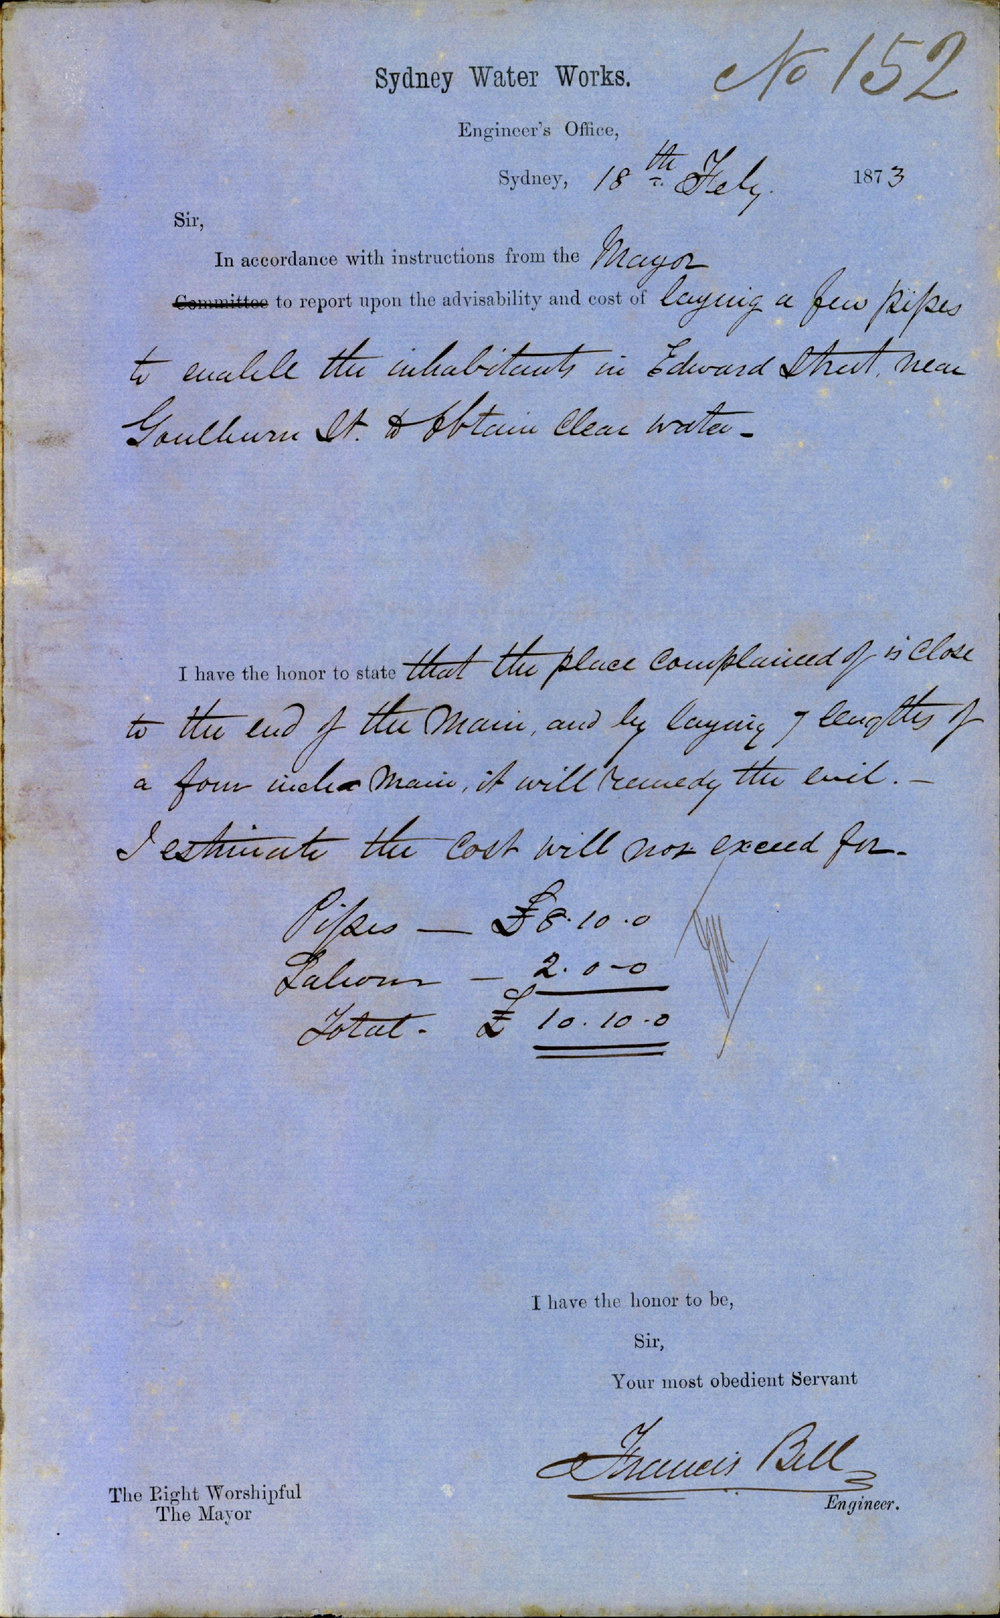 No 152
Sydney Water Works.
Engineer's Office,
Sydney, 18th Feby. 1873
Sir,
In accordance with instructions from the Mayor
Committee to report upon the advisability and cost of laying a few pipes
to enable the inhabitants in Edward Street, near
Goulburn St. to obtain Clear water -
I have the honor to state that the place complained of is close
to the end of the Main, and by laying 7 lengths of
a four inch Main, it will remedy the evil. -
I estimate the Cost will not exceed for -
Pipes — £8.10.0
Labour — 2.0-0
Total - £ 10.10.0
I have the honor to be,
Sir,
Your most obedient Servant
Francis Bell
Engineer.
The Right Worshipful
The Mayor